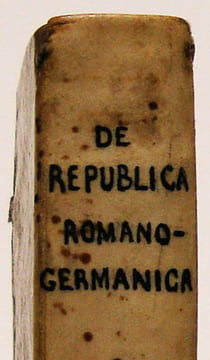 DE
REPUBLICA
ROMANO-
GERMANICA